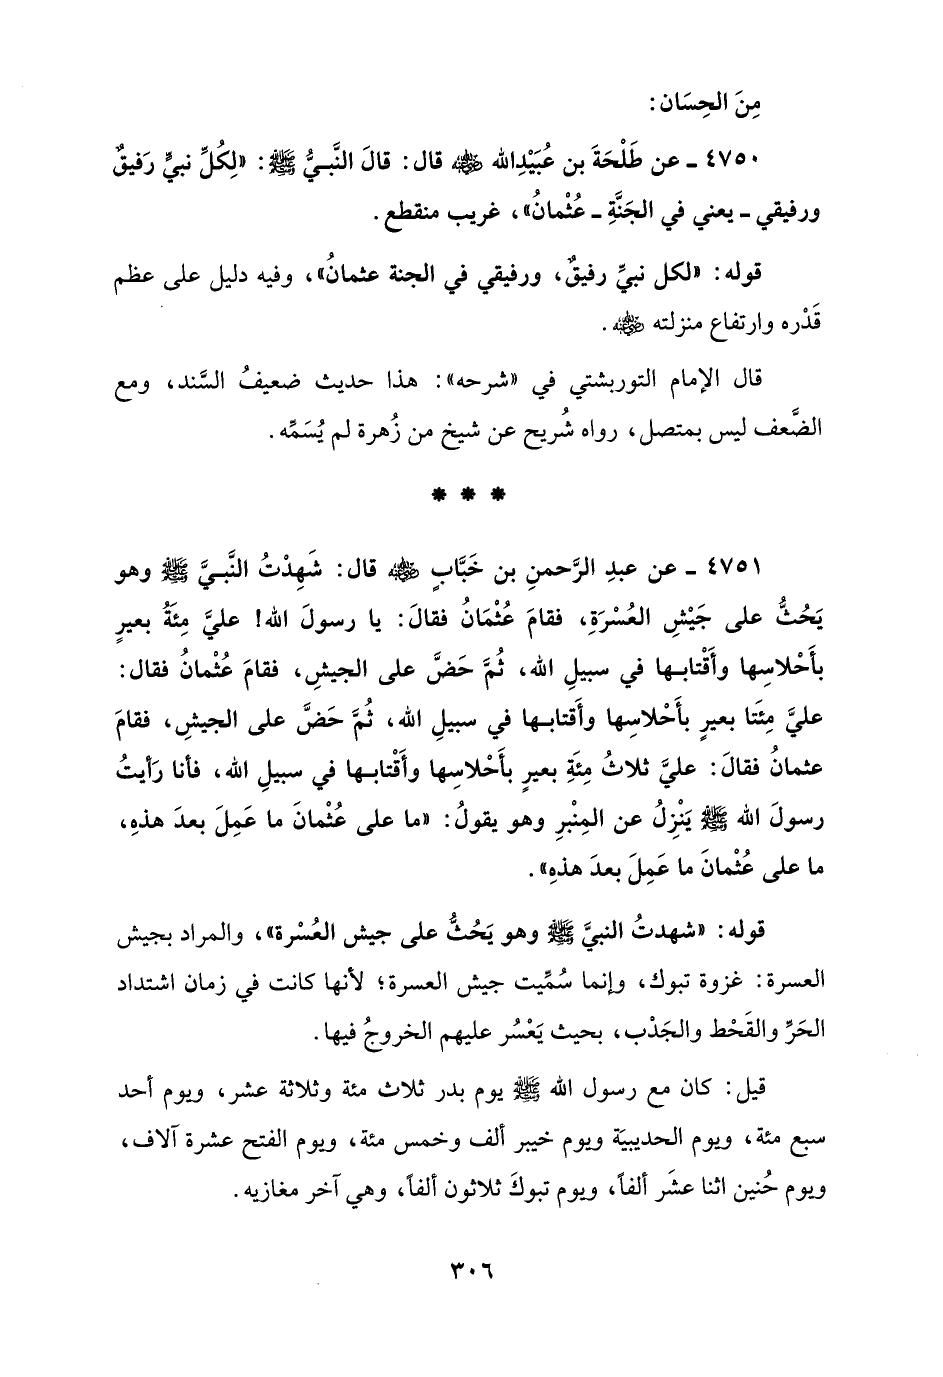 مِنَ الحِسَان:
٤٧٥٠ ـ عن طَلْحَةَ بن عُبَيْدِالله ﵁ قال: قالَ النَّبيُّ ﷺ: «لِكُلِّ نبيٍّ رَفيقٌ
ورفيقي ـ يعني في الجَنَّةِ ـ عُثْمانُ»، غريب منقطع.
قوله: «لكل نبيٍّ رفيقٌ، ورفيقي في الجنة عثمانُ»، وفيه دليل على عظم
قَدْره وارتفاع منزلته ﵁.
قال الإمام التوربشتي في «شرحه»: هذا حديث ضعيفُ السَّند، ومع
الضَّعف ليس بمتصل، رواه شُريح عن شيخ من زُهرة لم يُسَمِّه.
* * *
٤٧٥١ ـ عن عبدِ الرَّحمنِ بن خَبَّابٍ ﵁ قال: شَهِدْتُ النَّبيَّ ﷺ وهو
يَحُثُّ على جَيْشِ العُسْرَةِ، فقامَ عُثْمَانُ فقالَ: يا رسولَ الله! عليَّ مِئَةُ بعيرٍ
بأَحْلاسِها وأَقْتابها في سبيلِ الله، ثُمَّ حَضَّ على الجيشِ، فقامَ عُثْمانُ فقال:
عليَّ مِئَتَا بعيرٍ بأَحْلاسِها وأَقتابها في سبيلِ الله، ثُمَّ حَضَّ على الجيشِ، فقامَ
عثمانُ فقالَ: عليَّ ثلاثُ مِئَةِ بعيرٍ بأَحْلاسِها وأَقْتابها في سبيلِ الله، فأنا رَأيتُ
رسولَ الله ﷺ يَنْزِلُ عن المِنْبرِ وهو يقولُ: «ما على عُثْمانَ ما عَمِلَ بعدَ هذهِ،
ما على عُثْمانَ ما عَمِلَ بعدَ هذهِ».
قوله: «شهدتُ النبيَّ ﷺ وهو يَحُثُّ على جيش العُسْرة»، والمراد بجيش
العسرة: غزوة تبوك، وإنما سُمِّيت جيش العسرة؛ لأنها كانت في زمان اشتداد
الحَرِّ والقَحْط والجَدْب، بحيث يَعْسُر عليهم الخروجُ فيها.
قيل: كان مع رسول الله ﷺ يوم بدر ثلاث مئة وثلاثة عشر، ويوم أحد
سبع مئة، ويوم الحديبيَة ويوم خيبر ألف وخمس مئة، ويوم الفتح عشرة آلاف،
ويوم حُنين اثنا عشَر ألفاً، ويوم تبوكَ ثلاثون ألفاً، وهي آخر مغازيه.
٣٠٦